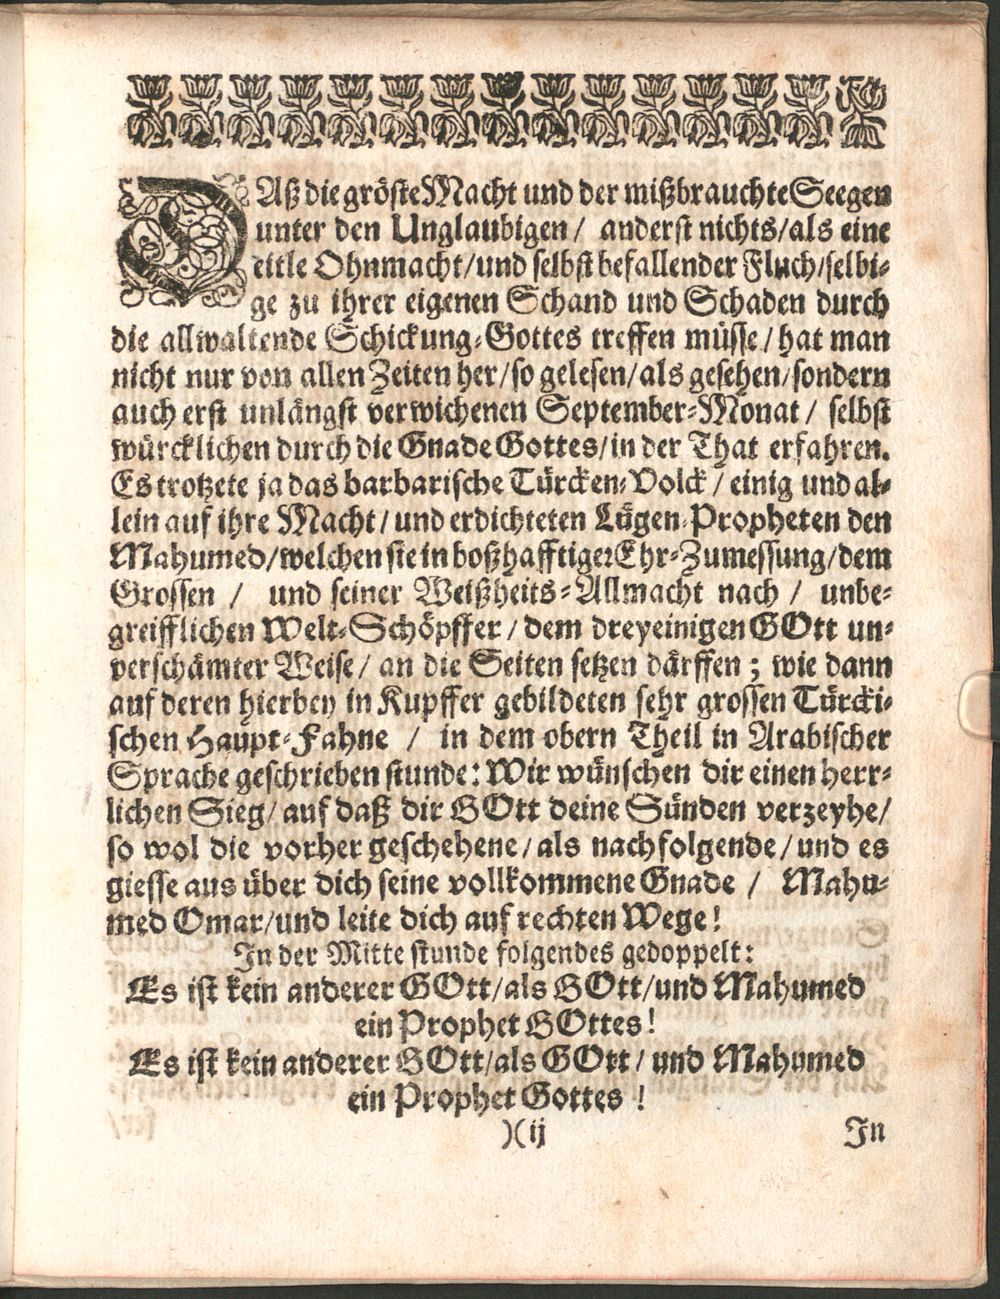 DAß die gröste Macht und der mißbrauchte Seegen
unter den Unglaubigen / anderst nichts / als eine
eitle Ohnmacht / und selbst befallender Fluch / selbi-
ge zu ihrer eigenen Schand und Schaden durch
die allwaltende Schickung-Gottes treffen müsse / hat man
nicht nur von allen Zeiten her / so gelesen / als gesehen / sondern
auch erst unlängst verwichenen September-Monat / selbst
würcklichen durch die Gnade Gottes / in der That erfahren.
Es trotzete ja das barbarische Türcken-Volck / einig und al-
lein auf ihre Macht / und erdichteten Lügen-Propheten den
Mahumed / welchen sie in boßhafftiger Ehr-Zumessung / dem
Grossen / und seiner Weißheits-Allmacht nach / unbe-
greifflichen Welt-Schöpffer / dem dreyeinigen GOtt un-
verschämter Weise / an die Seiten setzen därffen ; wie dann
auf deren hierbey in Kupffer gebildeten sehr grossen Türcki-
schen Haupt-Fahne / in dem obern Theil in Arabischer
Sprache geschrieben stunde: Wir wünschen dir einen herr-
lichen Sieg / auf daß dir GOtt deine Sünden verzeyhe /
so wol die vorher geschehene / als nachfolgende / und es
giesse aus über dich seine vollkommene Gnade / Mahu-
med Omar / und leite dich auf rechten Wege !
In der Mitte stunde folgendes gedoppelt:
Es ist kein anderer GOtt / als GOtt / und Mahumed
ein Prophet GOttes !
Es ist kein anderer GOtt / als GOtt / und Mahumed
ein Prophet Gottes !
)( ij In